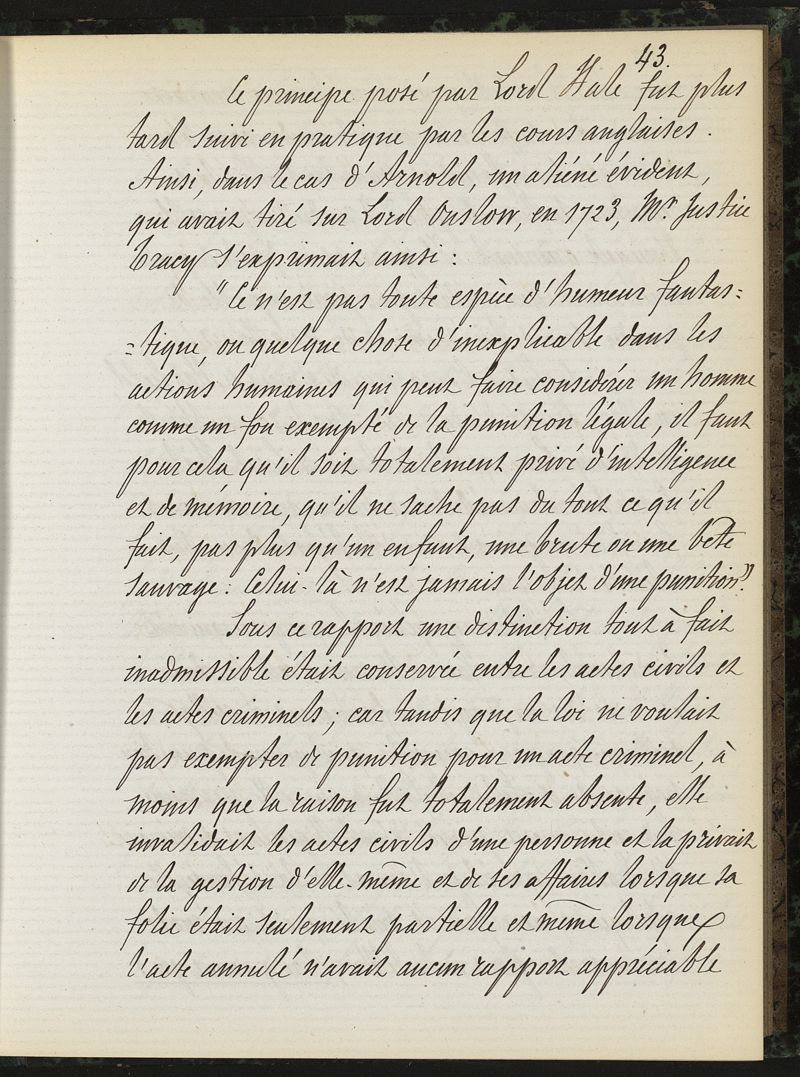 43.
Ce principe posé par Lord Hale fut plus
tard suivi en pratique par les cours anglaises.
Ainsi, dans le cas d'Arnold, un aliéné évident,
qui avait tiré sur Lord Onslow, en 1723, Mr. Justice
Tracy s'exprimait ainsi :
"Ce n'est pas toute espèce d'humeur fantas=
=tique, ou quelque chose d'inexplicable dans les
actions humaines qui peut faire considérer un homme
comme un fou exempté de la punition légale, il faut
pour cela qu'il soit totalement privé d'intelligence
et de mémoire, qu'il ne sache pas du tout ce qu'il
fait, pas plus qu'un enfant, une brute ou une bête
sauvage : Celui-là n'est jamais l'objet d'une punition".
Sous ce rapport une distinction tout à fait
inadmissible était conservée entre les actes civils et
les actes criminels ; car tandis que la loi ne voulait
pas exempter de punition pour un acte criminel, à
moins que la raison fut totalement absente, elle
invalidait les actes civils d'une personne et la privait
de la gestion d'elle-même et de ses affaires lorsque sa
folie était seulement partielle et même lorsque
l'acte annulé n'avait aucun rapport appréciable